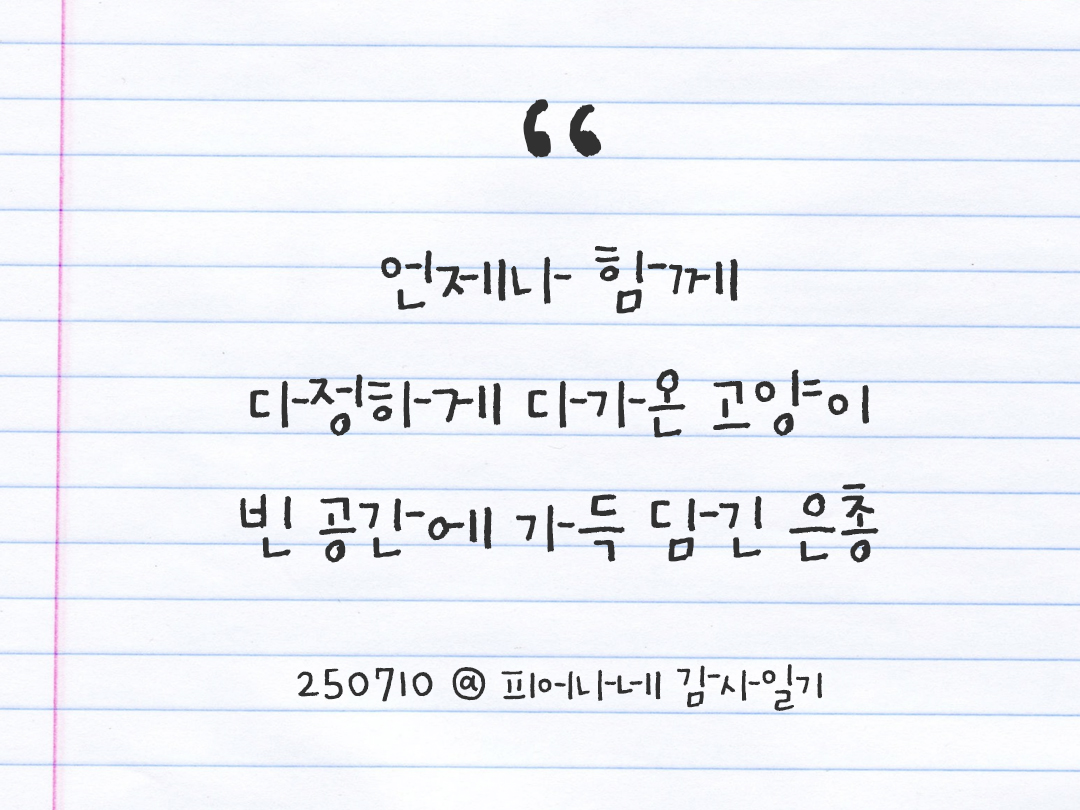 “
언제나 함께
다정하게 다가온 고양이
빈 공간에 가득 담긴 은총
250710 @ 피어나네 감사일기